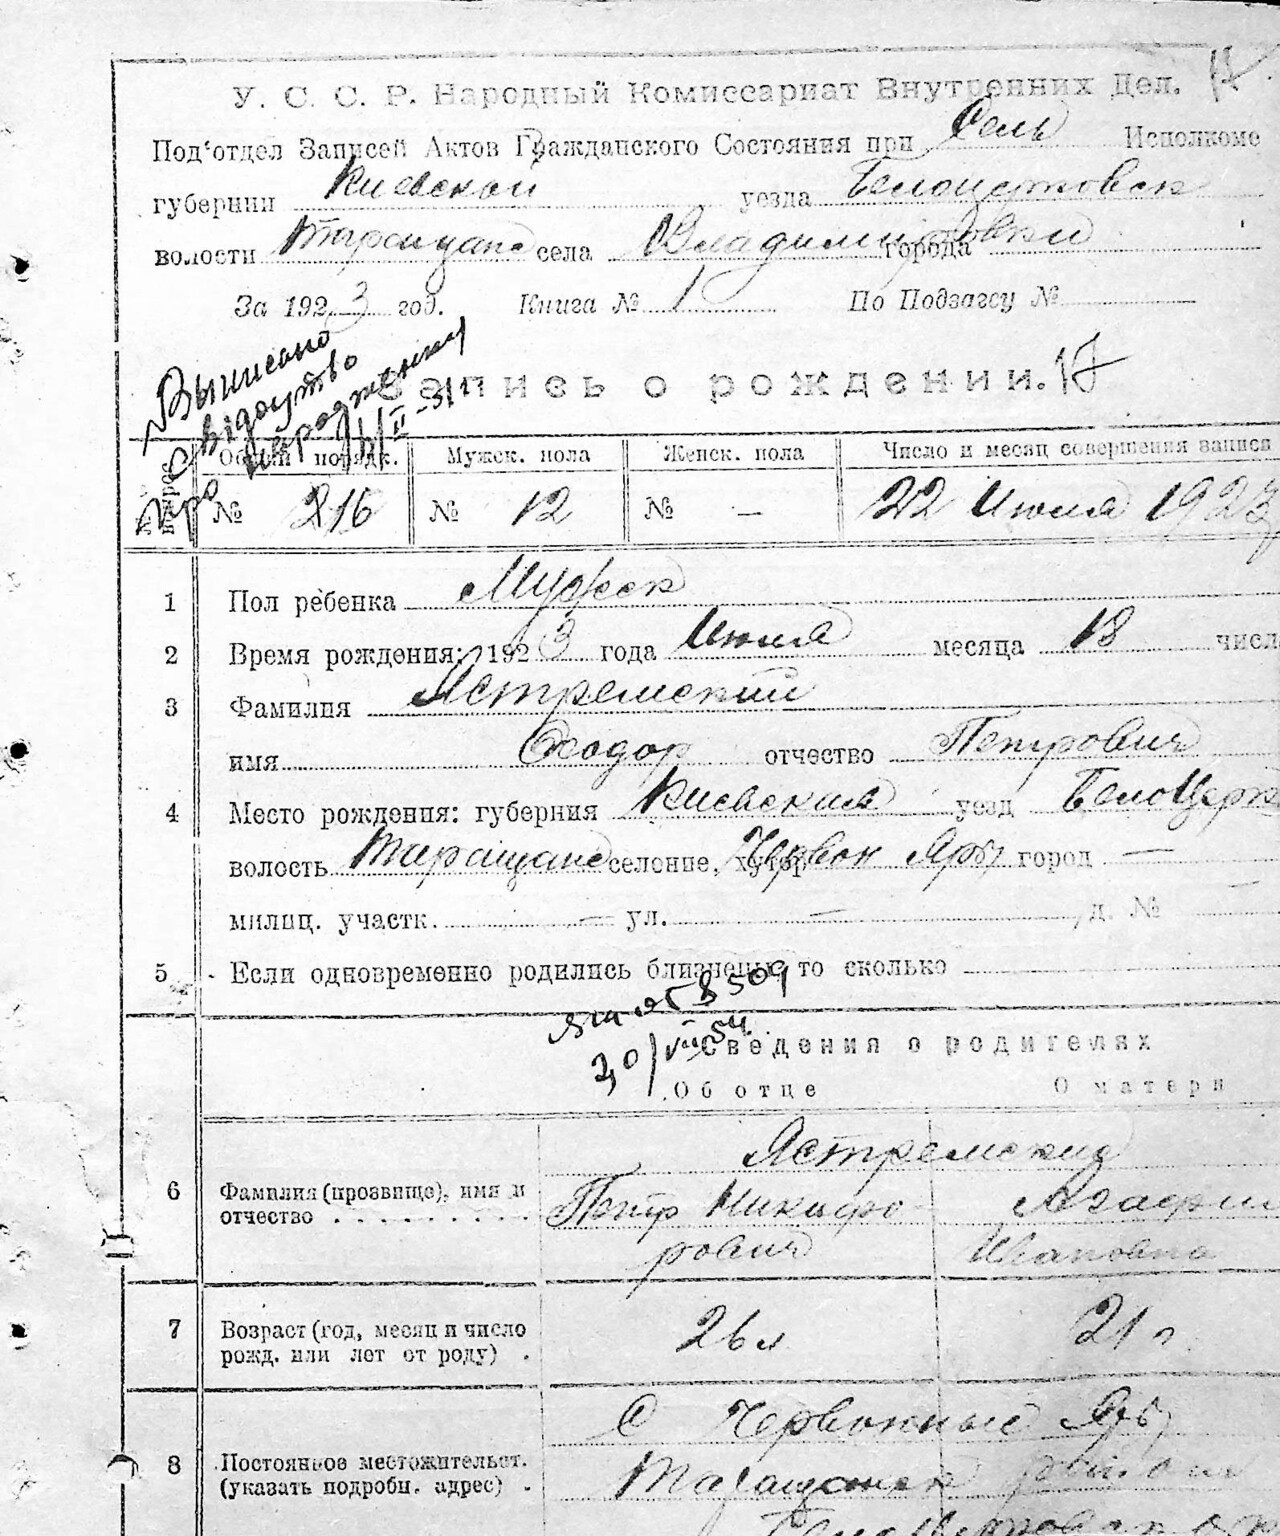 У. С. С. Р. Народный Комиссариат Внутренних Дел. 17
Под'отдел Записей Актов Гражданского Состояния при Сель Исполкоме
губернии Киевской уезда Белоцерковск
волости Таращанс села Владимировки города
За 1923 год. Книга № 1 По Подзагсу №
Выписано
свідоцтво
про народження
Запись о рождении. 17
Общий порядк. Мужск. пола Женск. пола Число и месяц совершения записи
№ 216 № 12 № — 22 Июля 1923
1 Пол ребенка Мужск
2 Время рождения: 1923 года Июля месяца 18 числа
3 Фамилия Ястремский
имя Феодор отчество Петрович
4 Место рождения: губерния Киевская уезд БелоЦерк
волость Таращанс селение, хутор Червон Яр город —
милиц. участк. — ул. — д. № —
5 Если одновременно родились близнецы, то сколько
Сведения о родителях
Об отце О матери
Ястремские
6 Фамилия (прозвище), имя и Петр Никифо Агафия
отчество . . . . . . . . . рович Ивановна
7 Возраст (год, месяц и число 26 л 21 г
рожд. или лет от роду) .
С Червонный Яр
8 Постоянное местожительст. Таращанск района
(указать подробн. адрес) .